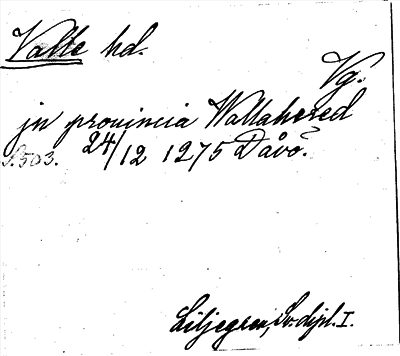 Valle hd.
Vg.
jn provincia Wallahæred
S. 503. 24/12 1275 Dåvö?
Liljegren, Sv. dipl. I.